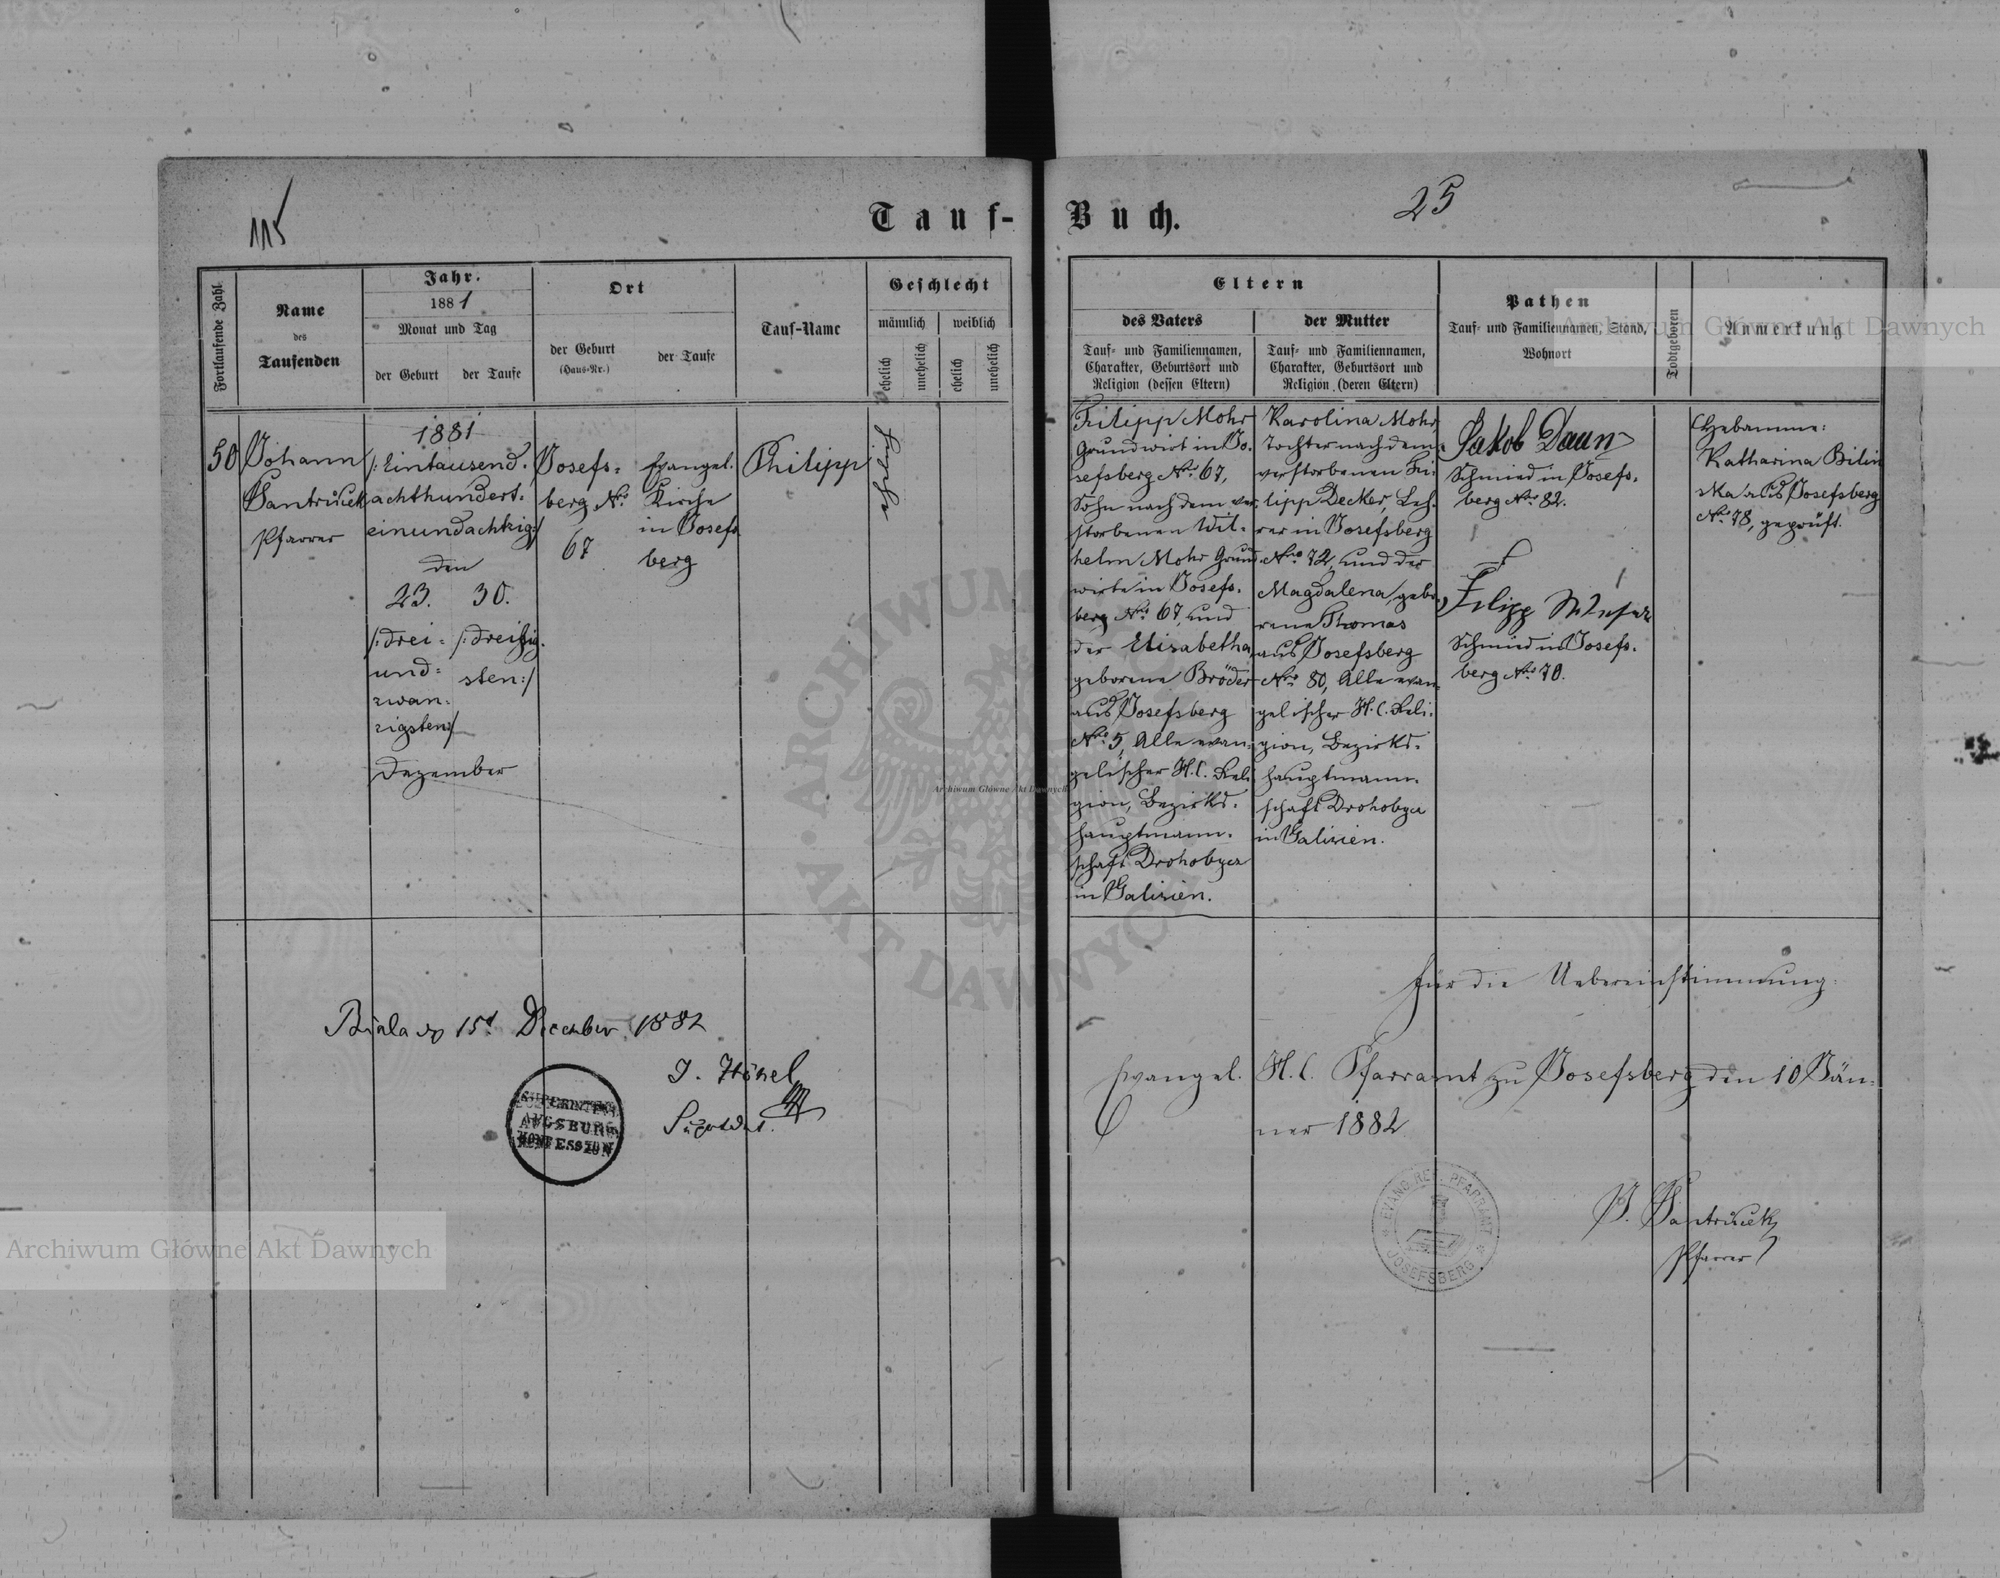 115
25
Tauf-Buch.
Fortlaufende Zahl
Name
des
Taufenden
Jahr.
1881
Monat und Tag
der Geburt
der Taufe
Ort
der Geburt
(Haus-Nr.)
der Taufe
Tauf-Name
Geschlecht
männlich
weiblich
ehelich
unehelich
ehelich
unehelich
Eltern
des Vaters
Tauf- und Familiennamen,
Charakter, Geburtsort und
Religion (dessen Eltern)
der Mutter
Tauf- und Familiennamen,
Charakter, Geburtsort und
Religion (deren Eltern)
Pathen
Tauf- und Familiennamen, Stand,
Wohnort
Todtgeboren
Anmerkung
50
Johann
Jantruček
Pfarrer
1881
/:Eintausend-
achthundert-
einundachtzig:/
den
23. 30.
/:drei-
und-
zwan-
zigsten:/
/:dreißig-
sten:/
Dezember
Josefs-
berg Nro.
67
Evangel.
Kirche
in Josefs
berg
Philipp
Filipp Mohr
Grundwirt in Jo-
sefsberg Nro. 67,
Sohn nach dem ver-
storbenen Wil-
helm Mohr Grund
wirte in Josefs-
berg Nro. 67, und
der Elisabetha
geborene Bröder
aus Josefsberg
Nro. 5, Alle evan-
gelischer H.C. Reli
gion, Bezirks-
hauptmann-
schaft Drohobycz
in Galizien.
Karolina Mohr
Tochter nach dem
verstorbenen Fi-
lipp Decker, Leh-
rer in Josefsberg
Nro. 72, und der
Magdalena gebo-
rene Thomas
aus Josefsberg
Nro. 80, Alle evan-
gelischer H.C. Reli-
gion, Bezirks-
hauptmann-
schaft Drohobycz
in Galizien.
Jakob Daun
Schmied in Josefs-
berg Nro. 82.
Filipp
Schmied in Josefs-
berg Nro. 70.
Hebamme:
Katharina Bilin
ska aus Josefsberg
No. 78, geprüft.
Für die Uebereinstimmung:
Evangel. H.C. Pfarramt zu Josefsberg den 10 Jän-
ner 1882
J. Jantruček
Pfarrer
EVANG. REF. PFARRAMT
JOSEFSBERG
Biala 15t December 1882
J. Hönel
SUPERINTEND.
AUGSBURG.
KONFESSION
ARCHIWUM GŁÓWNE AKT DAWNYCH
Archiwum Główne Akt Dawnych
Archiwum Główne Akt Dawnych
Archiwum Główne Akt Dawnych